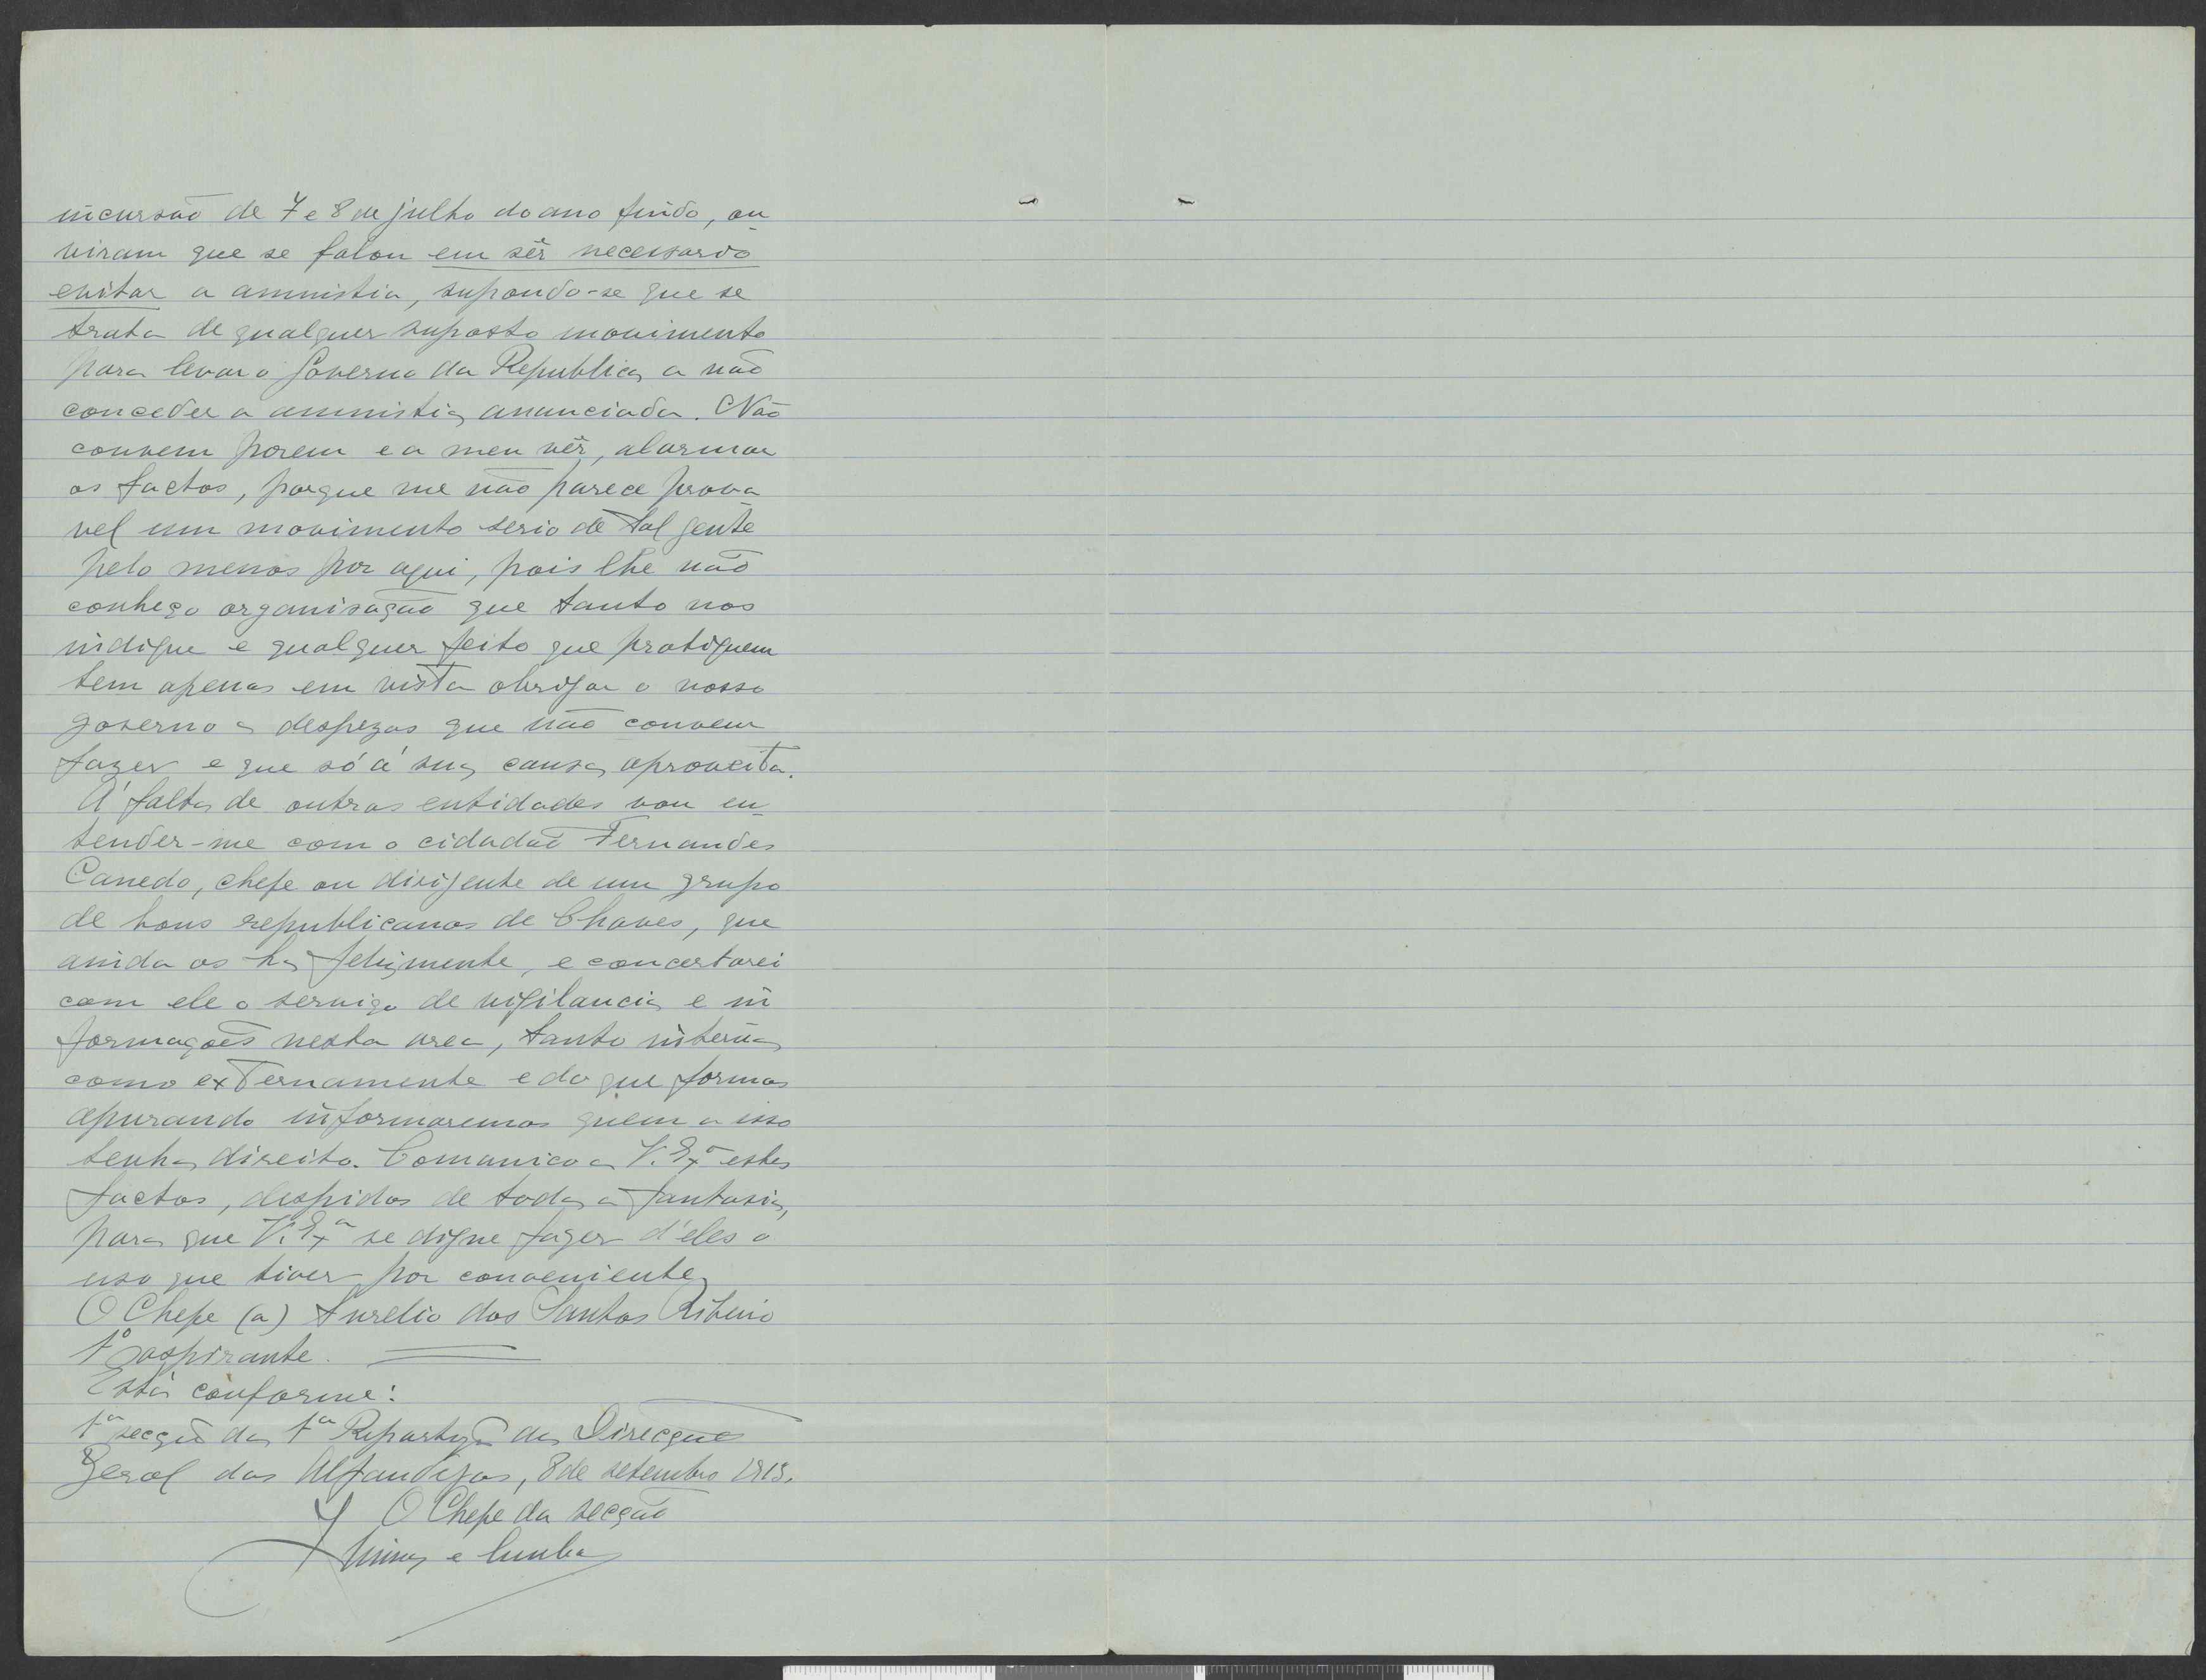 incursão de 7 e 8 de julho do ano findo, ou-
viram que se falou em sêr necessario
evitar a amnistia, supondo-se que se
trata de qualquer suposto movimento
para levar o Governo da Republica a não
conceder a amnistia anunciada. Não
convem porem e a meu vêr, alarmar
os factos, porque me não parece prova-
vel um movimento serio de tal gente
pelo menos por aqui, pois lhe não
conheço organisação que tanto nos
indique e qualquer feito que pratiquem
tem apenas em vista obrigar o nosso
governo a despezas que não convem
fazer e que só á sua causa aproveita.
Á falta de outras entidades vou en-
tender-me com o cidadão Fernandes
Canedo, chefe ou dirigente de um grupo
de bons republicanos de Chaves, que
ainda os ha felizmente, e concertarei
com ele o serviço de vigilancia e in
formações nesta area, tanto interna
como externamente e do que formos
apurando informaremos quem a isso
tenha direito. Comunico a V. Exª estes
factos, despidos de toda a fantasia,
para que V. Exª se digne fazer d'eles o
uso que tiver por conveniente
O Chefe (a) Aurelio dos Santos Ribeiro
1º aspirante.
Está conforme:
1ª secção da 1ª Repartição da Direcção
Geral das Alfandegas, 8 de setembro 1913.
O Chefe da secção
e Cunha